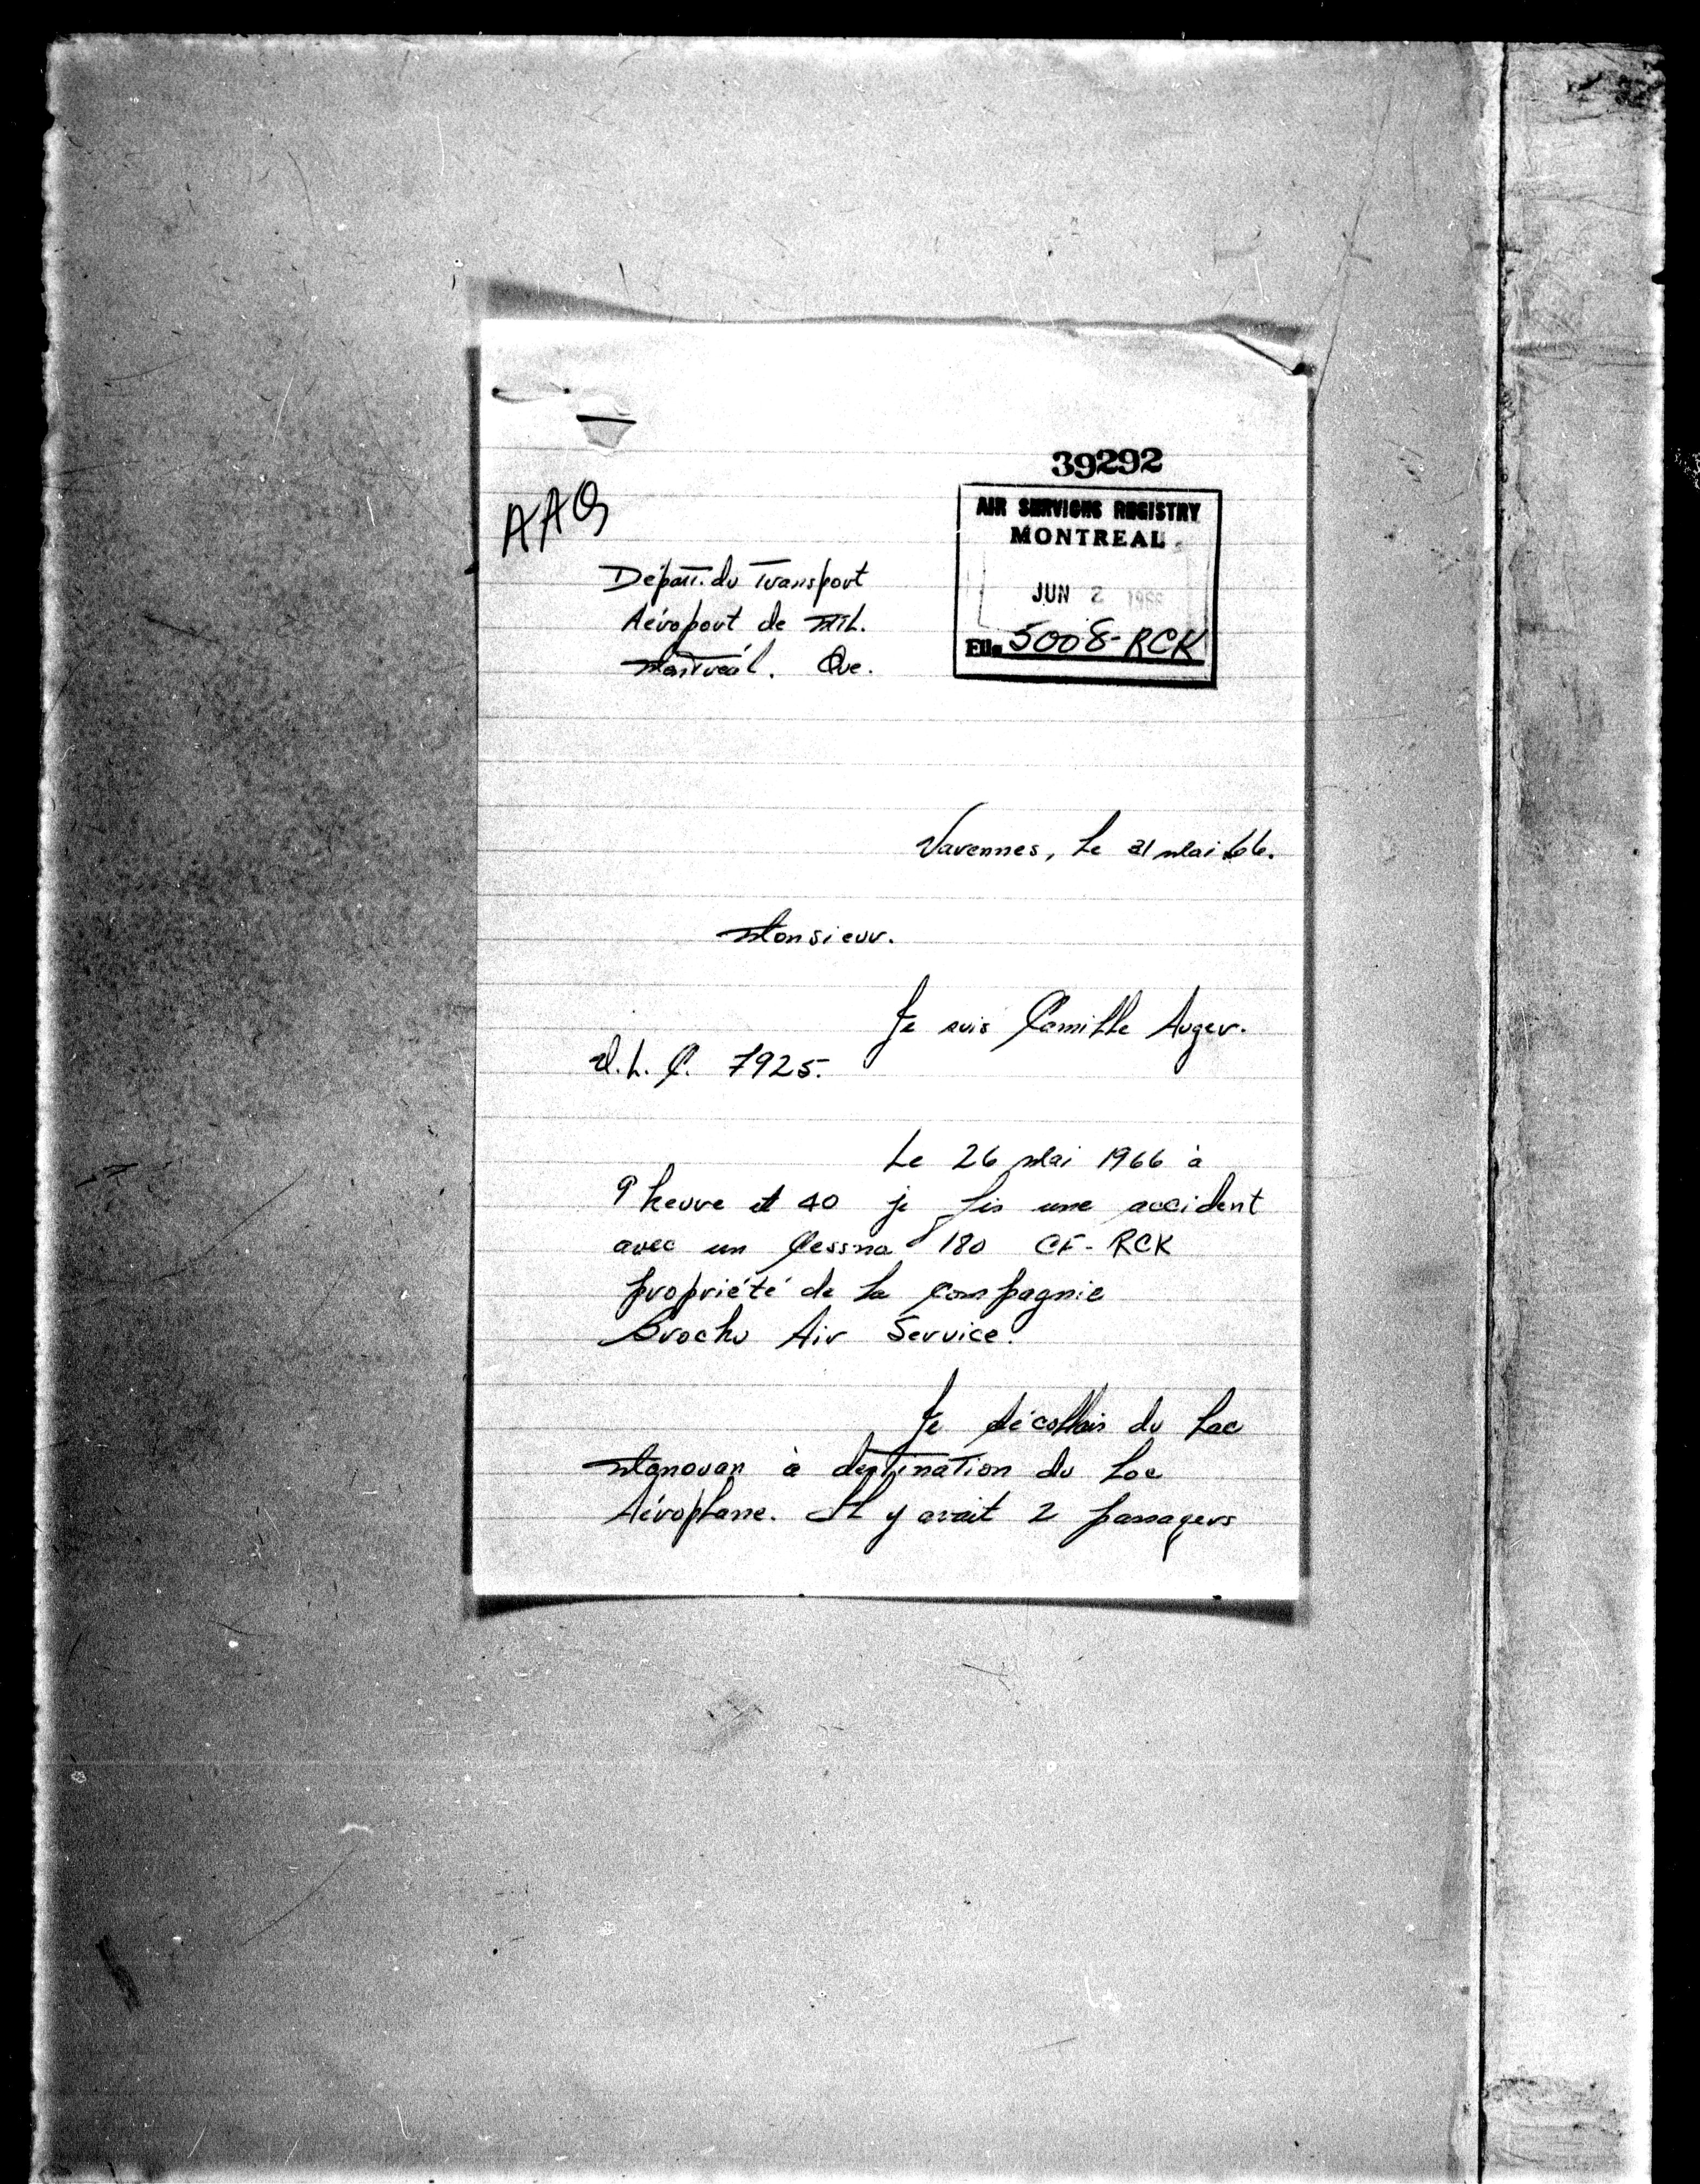 39292
AIR SERVICES REGISTRY
MONTREAL
JUN 2 1966
File 5008-RCK
AAG
Depart. du Transport
Aéroport de Mtl.
Montréal. Que.
Varennes, Le 31 Mai 66.
Monsieur.
Je suis Camille Auger.
7925.
Le 26 Mai 1966 à
9 heure et 40 je fis une accident
avec un Cessna 180 CF-RCK
propriété de la compagnie
Brochu Air Service.
Je décollais du Lac
Manouan à destination du Lac
Aéroplane. Il y avait 2 passagers